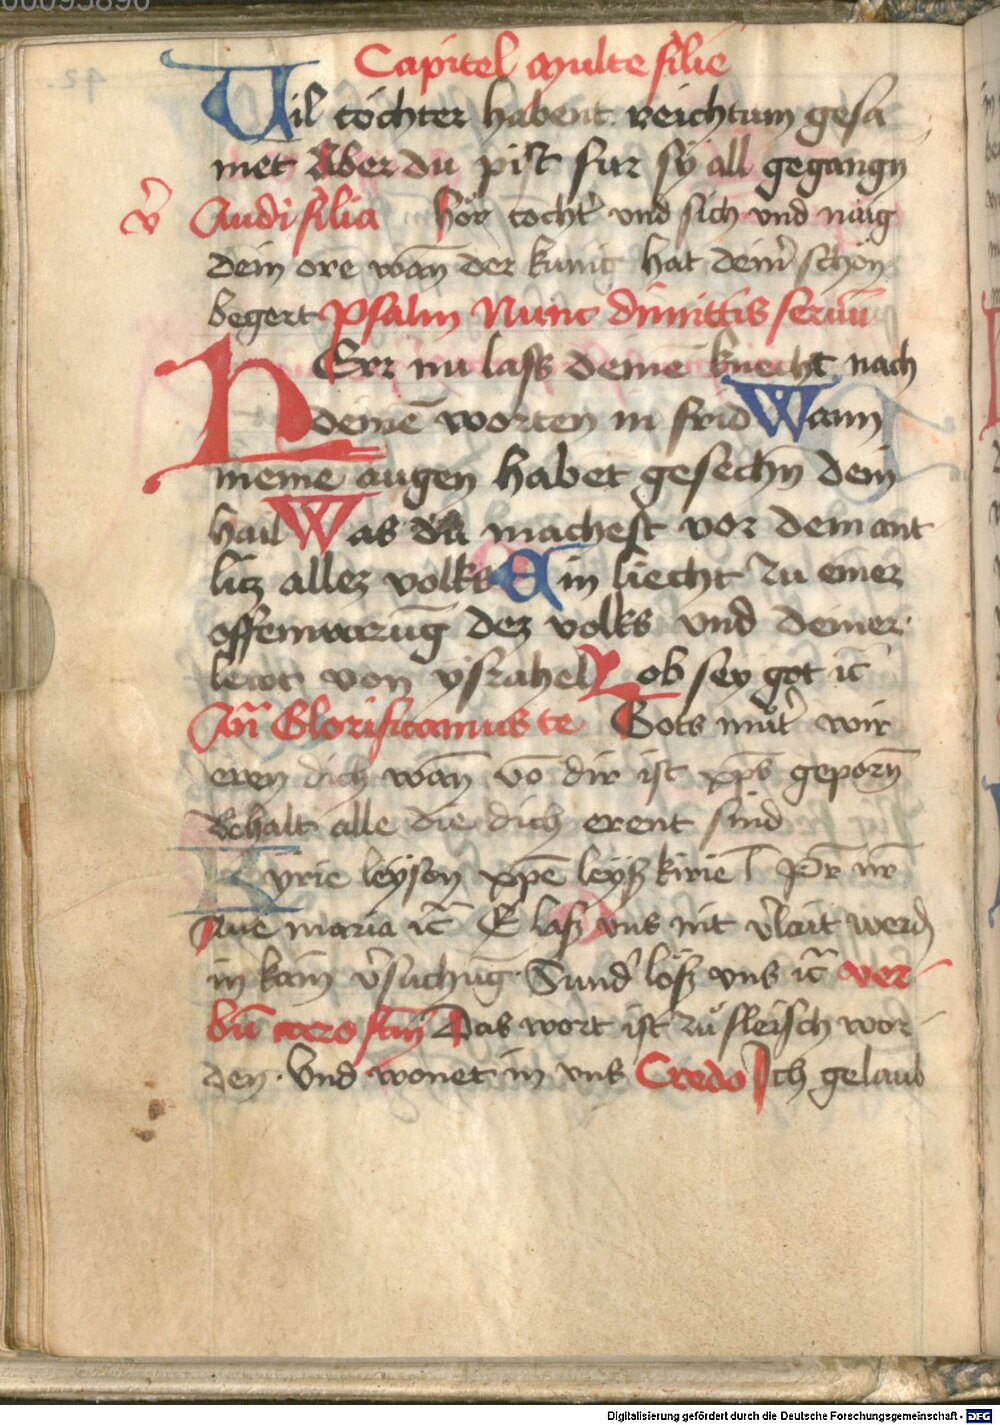 00095890
Capitel Multe filie
Uil töchter habent reichtum gesa
met Aber du pist fur sÿ all gegangn
v̄ Audi filia hör tocht̉ vnd sich vnd naig
dein ore wañ der kunig hat dein̉ schön
begert Psalm Nunc dimittis seruū
HErr nu lass deinē knecht nach
deinē worten in frid Wann
meine augen habēt gesechn̄ dein
hail Was du machest vor dem ant
litz allez volks Ain liecht zu einer
offenwarūg dez volks vnd deiner
lewt von ÿsrahel Lob sey got ꝛc̄
Añ Glorificamus te Gots mut̉ wir
eren dich wañ vō dir ist xp̄s geporn̄
Behalt alle die dich erent sind
Kyrie leÿson xp̄e leyß kirie l Pr̄ nr̄
Aue maria ꝛc̄ E laß vns nit v̉lait werdn̄
in kain v̉suchūg Sund̉ löß vns ꝛc̄ ver
bū caro fc̄m Das wort ist zu fleisch wor
den. Vnd wonet in vns Credo Ich gelaub
Digitalisierung gefördert durch die Deutsche Forschungsgemeinschaft - DFG